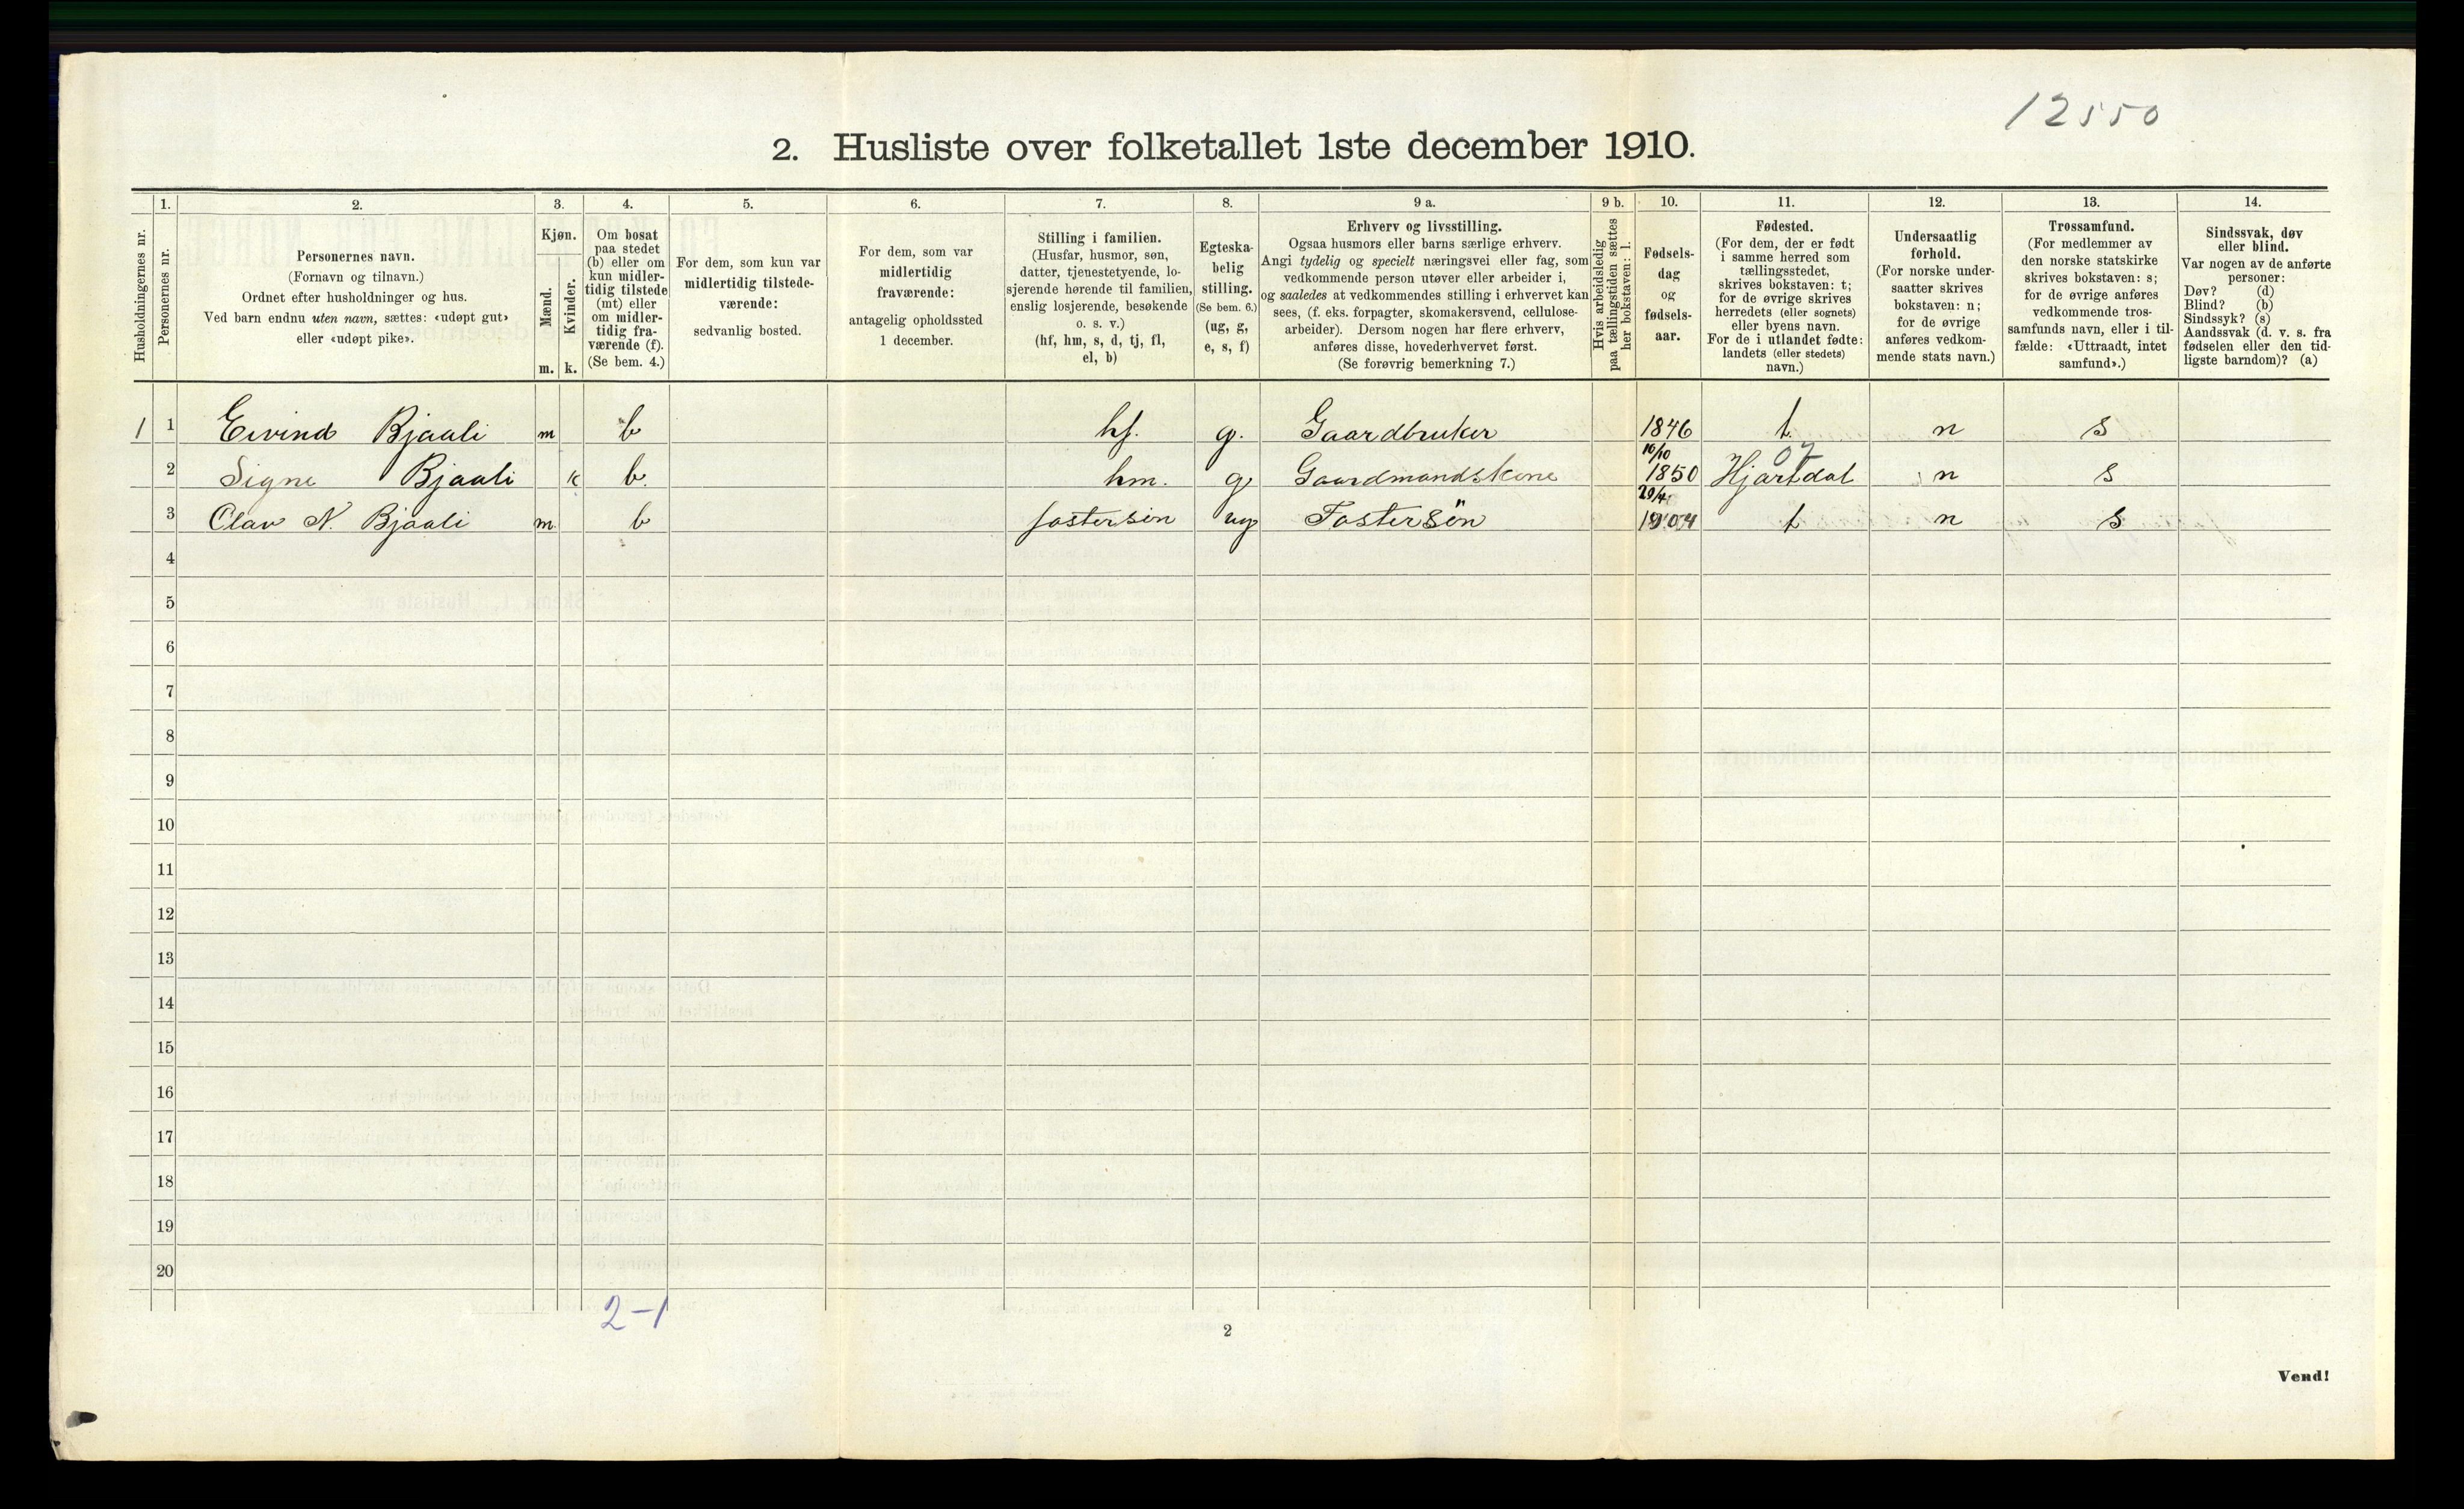 12550
2. Husliste over folketallet 1ste december 1910.
Husholdningernes nr.
1.
Personernes nr.
2.
Personernes navn.
(Fornavn og tilnavn.)
Ordnet efter husholdninger og hus.
Ved barn endnu uten navn, sættes: «udøpt gut»
eller «udøpt pike».
3.
Kjøn.
Mænd.
Kvinder.
m. k.
4.
Om bosat
paa stedet
(b) eller om
kun midler-
tidig tilstede
(mt) eller
om midler-
tidig fra-
værende (f).
(Se bem. 4.)
5.
For dem, som kun var
midlertidig tilstede-
værende:
sedvanlig bosted.
6.
For dem, som var
midlertidig
fraværende:
antagelig opholdssted
1 december.
7.
Stilling i familien.
(Husfar, husmor, søn,
datter, tjenestetyende, lo-
sjerende hørende til familien,
enslig losjerende, besøkende
o. s. v.)
(hf, hm, s, d, tj, fl,
el, b)
8.
Egteska-
belig
stilling.
(Se bem. 6.)
(ug, g,
e, s, f)
9 a.
Erhverv og livsstilling.
Ogsaa husmors eller barns særlige erhverv.
Angi tydelig og specielt næringsvei eller fag, som
vedkommende person utøver eller arbeider i,
og saaledes at vedkommendes stilling i erhvervet kan
sees, (f. eks. forpagter, skomakersvend, cellulose-
arbeider). Dersom nogen har flere erhverv,
anføres disse, hovederhvervet først.
(Se forøvrig bemerkning 7.)
9 b.
Hvis arbeidsledig
paa tællingstiden sættes
her bokstaven: l.
10.
Fødsels-
dag
og
fødsels-
aar.
11.
Fødested.
(For dem, der er født
i samme herred som
tællingsstedet,
skrives bokstaven: t;
for de øvrige skrives
herredets (eller sognets)
eller byens navn.
For de i utlandet fødte:
landets (eller stedets)
navn.)
12.
Undersaatlig
forhold.
(For norske under-
saatter skrives
bokstaven: n;
for de øvrige
anføres vedkom-
mende stats navn.)
13.
Trossamfund.
(For medlemmer av
den norske statskirke
skrives bokstaven: s;
for de øvrige anføres
vedkommende tros-
samfunds navn, eller i til-
fælde: «Uttraadt, intet
samfund».)
14.
Sindssvak, døv
eller blind.
Var nogen av de anførte
personer:
Døv? (d)
Blind? (b)
Sindssyk? (s)
Aandssvak (d. v. s. fra
fødselen eller den tid-
ligste barndom)? (a)
1 1 Eivind Bjaali m b hf. g. Gaardbruker 1846 t. n s
2 Signe Bjaali k b. hm. g Gaardmandskone 10/10 1850 07 Hjartdal n s
3 Olav N. Bjaali m b fostersön ug Fostersön 29/4 1904 t n s
4
5
6
7
8
9
10
11
12
13
14
15
16
17
18
19
20
2-1
2
Vend!